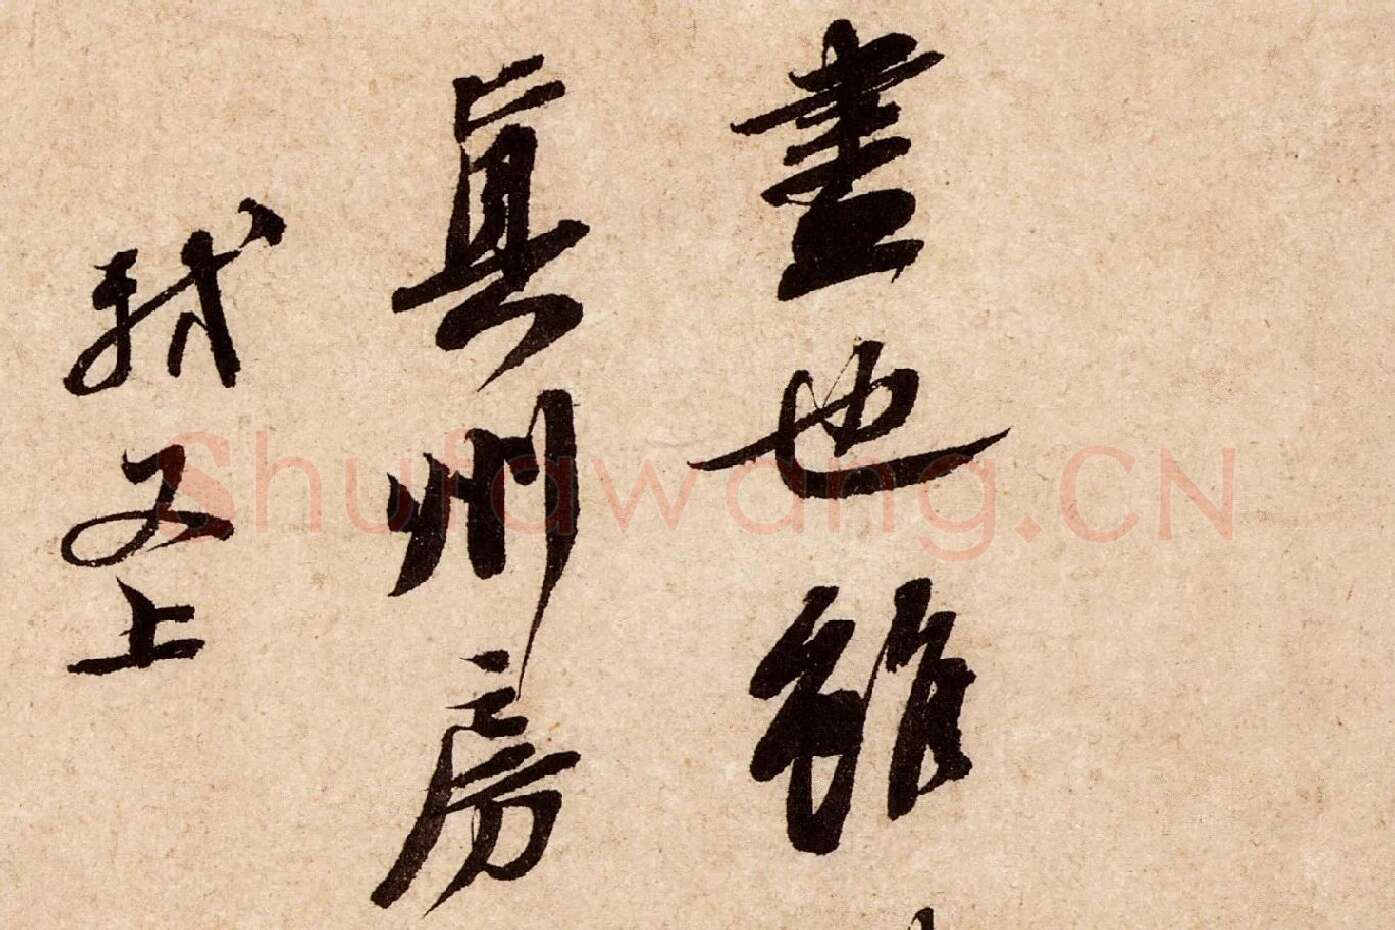 書也雖
真州房
軾又上
Shufawang.CN